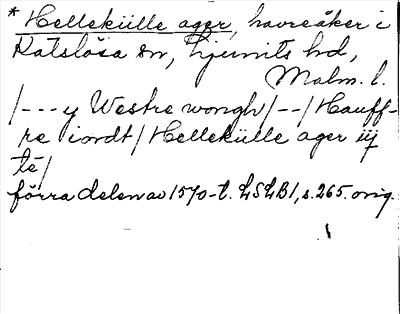 * Hellekülle ager, havreåker i
Katslösa sn, Ljunits hd,
Malm. l.
/---y Westre wongh/--/Hauff-
re iordt/Hellekülle ager iij
tē/
förra delen av 1570-t. LSLB1, s. 265. orig.